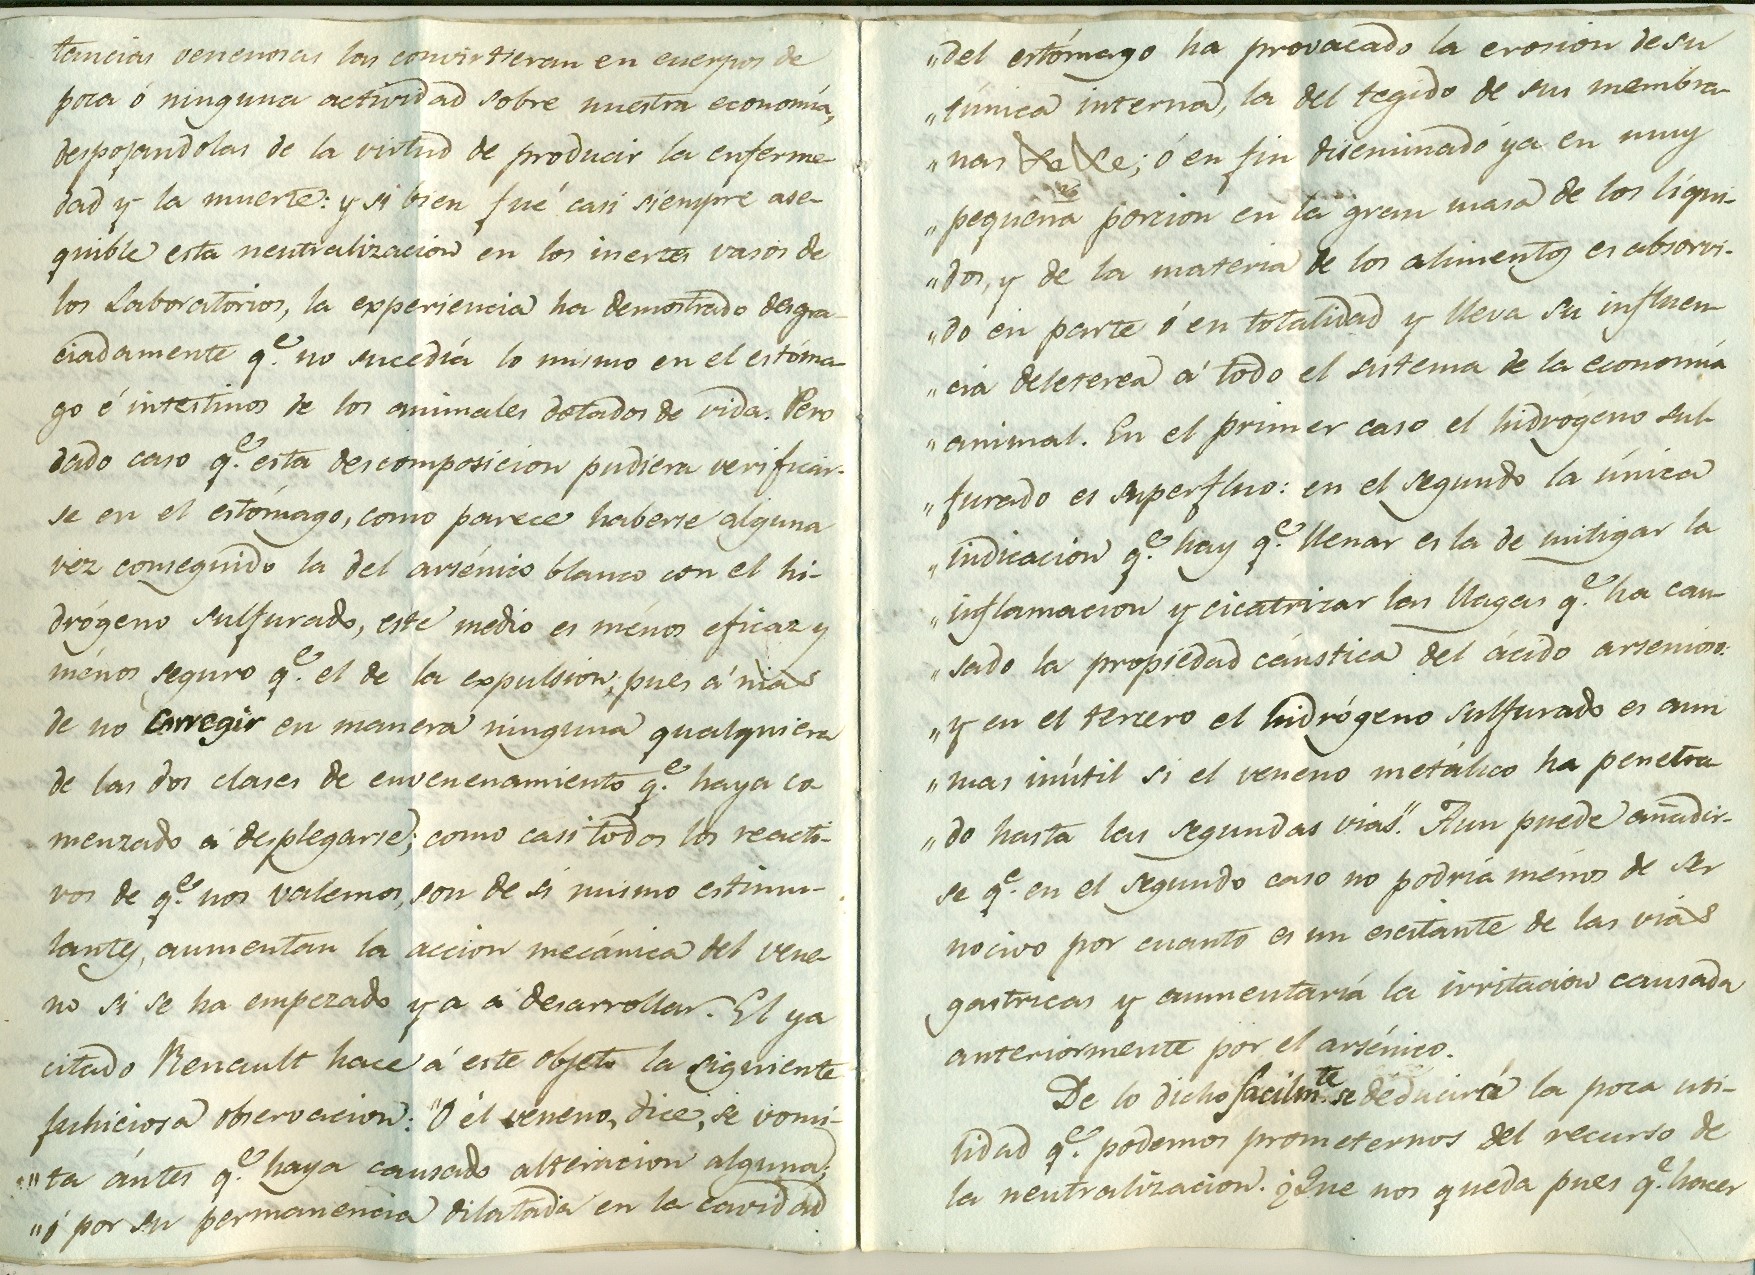 tancias venenosas las convirtieran en cuerpos de
poca ó ninguna actividad sobre nuestra economía,
despojandolas de la virtud de producir la enferme-
dad y la muerte: y si bien fué casi siempre ase-
quible esta neutralizacion en los inertes vasos de
los Laboratorios, la experiencia ha demostrado desgra-
ciadamente qe. no sucedía lo mismo en el estóma-
go é intestinos de los animales dotados de vida. Pero
dado caso qe. esta descomposicion pudiera verificar-
se en el estómago, como parece haberse alguna
vez conseguido la del arsénico blanco con el hi-
drógeno sulfurado, este medio es ménos eficaz y
ménos seguro qe. el de la expulsion; pues á mas
de no corregir en manera ninguna qualquiera
de las dos clases de envenenamiento qe. haya co
menzado á desplegarse; como casi todos los reacti-
vos de qe. nos valemos, son de si mismo estimu-
lantes, aumentan la accion mecánica del vene-
no si se ha empezado ya a desarrollar. El ya
citado Renault hace á este objeto la siguiente
juhiciosa observacion: "O él veneno, dice, se vomi-
"ta ántes qe. haya causado alteracion alguna;
"ó por su permanencia dilatada en la cavidad
"del estómago ha provacado la erosion de su
"túnica interna, la del tegido de sus membra-
"nas &c &c; ó en fin diseminado ya en muy
"pequena porcion en la gran masa de los líqui-
"dos, y de la materia de los alimentos es absorvi-
"do en parte ó en totalidad y lleva su influen-
"cia deleterea á todo el sistema de la economía
"animal. En el primer caso el hidrógeno sul-
"furado es superfluo: en el segundo la única
"indicacion qe. hay qe. llenar es la de mitigar la
"inflamacion y cicatrizar las llagas qe. ha cau-
"sado la propiedad cáustica del ácido arsenioso:
"y en el tercero el hidrógeno sulfurado es aun
"mas inútil si el veneno metálico ha penetra
"do hasta las segundas vias". Aun puede añadir-
se qe. en el segundo caso no podría ménos de ser
nocivo por cuanto es un escitante de las vias
gastricas y aumentaría la irritacion causada
anteriormente por el arsénico.
De lo dicho facilmte. se deducirá la poca uti-
lidad qe. podemos prometernos del recurso de
la neutralizacion. ¿Que nos queda pues qe. hacer